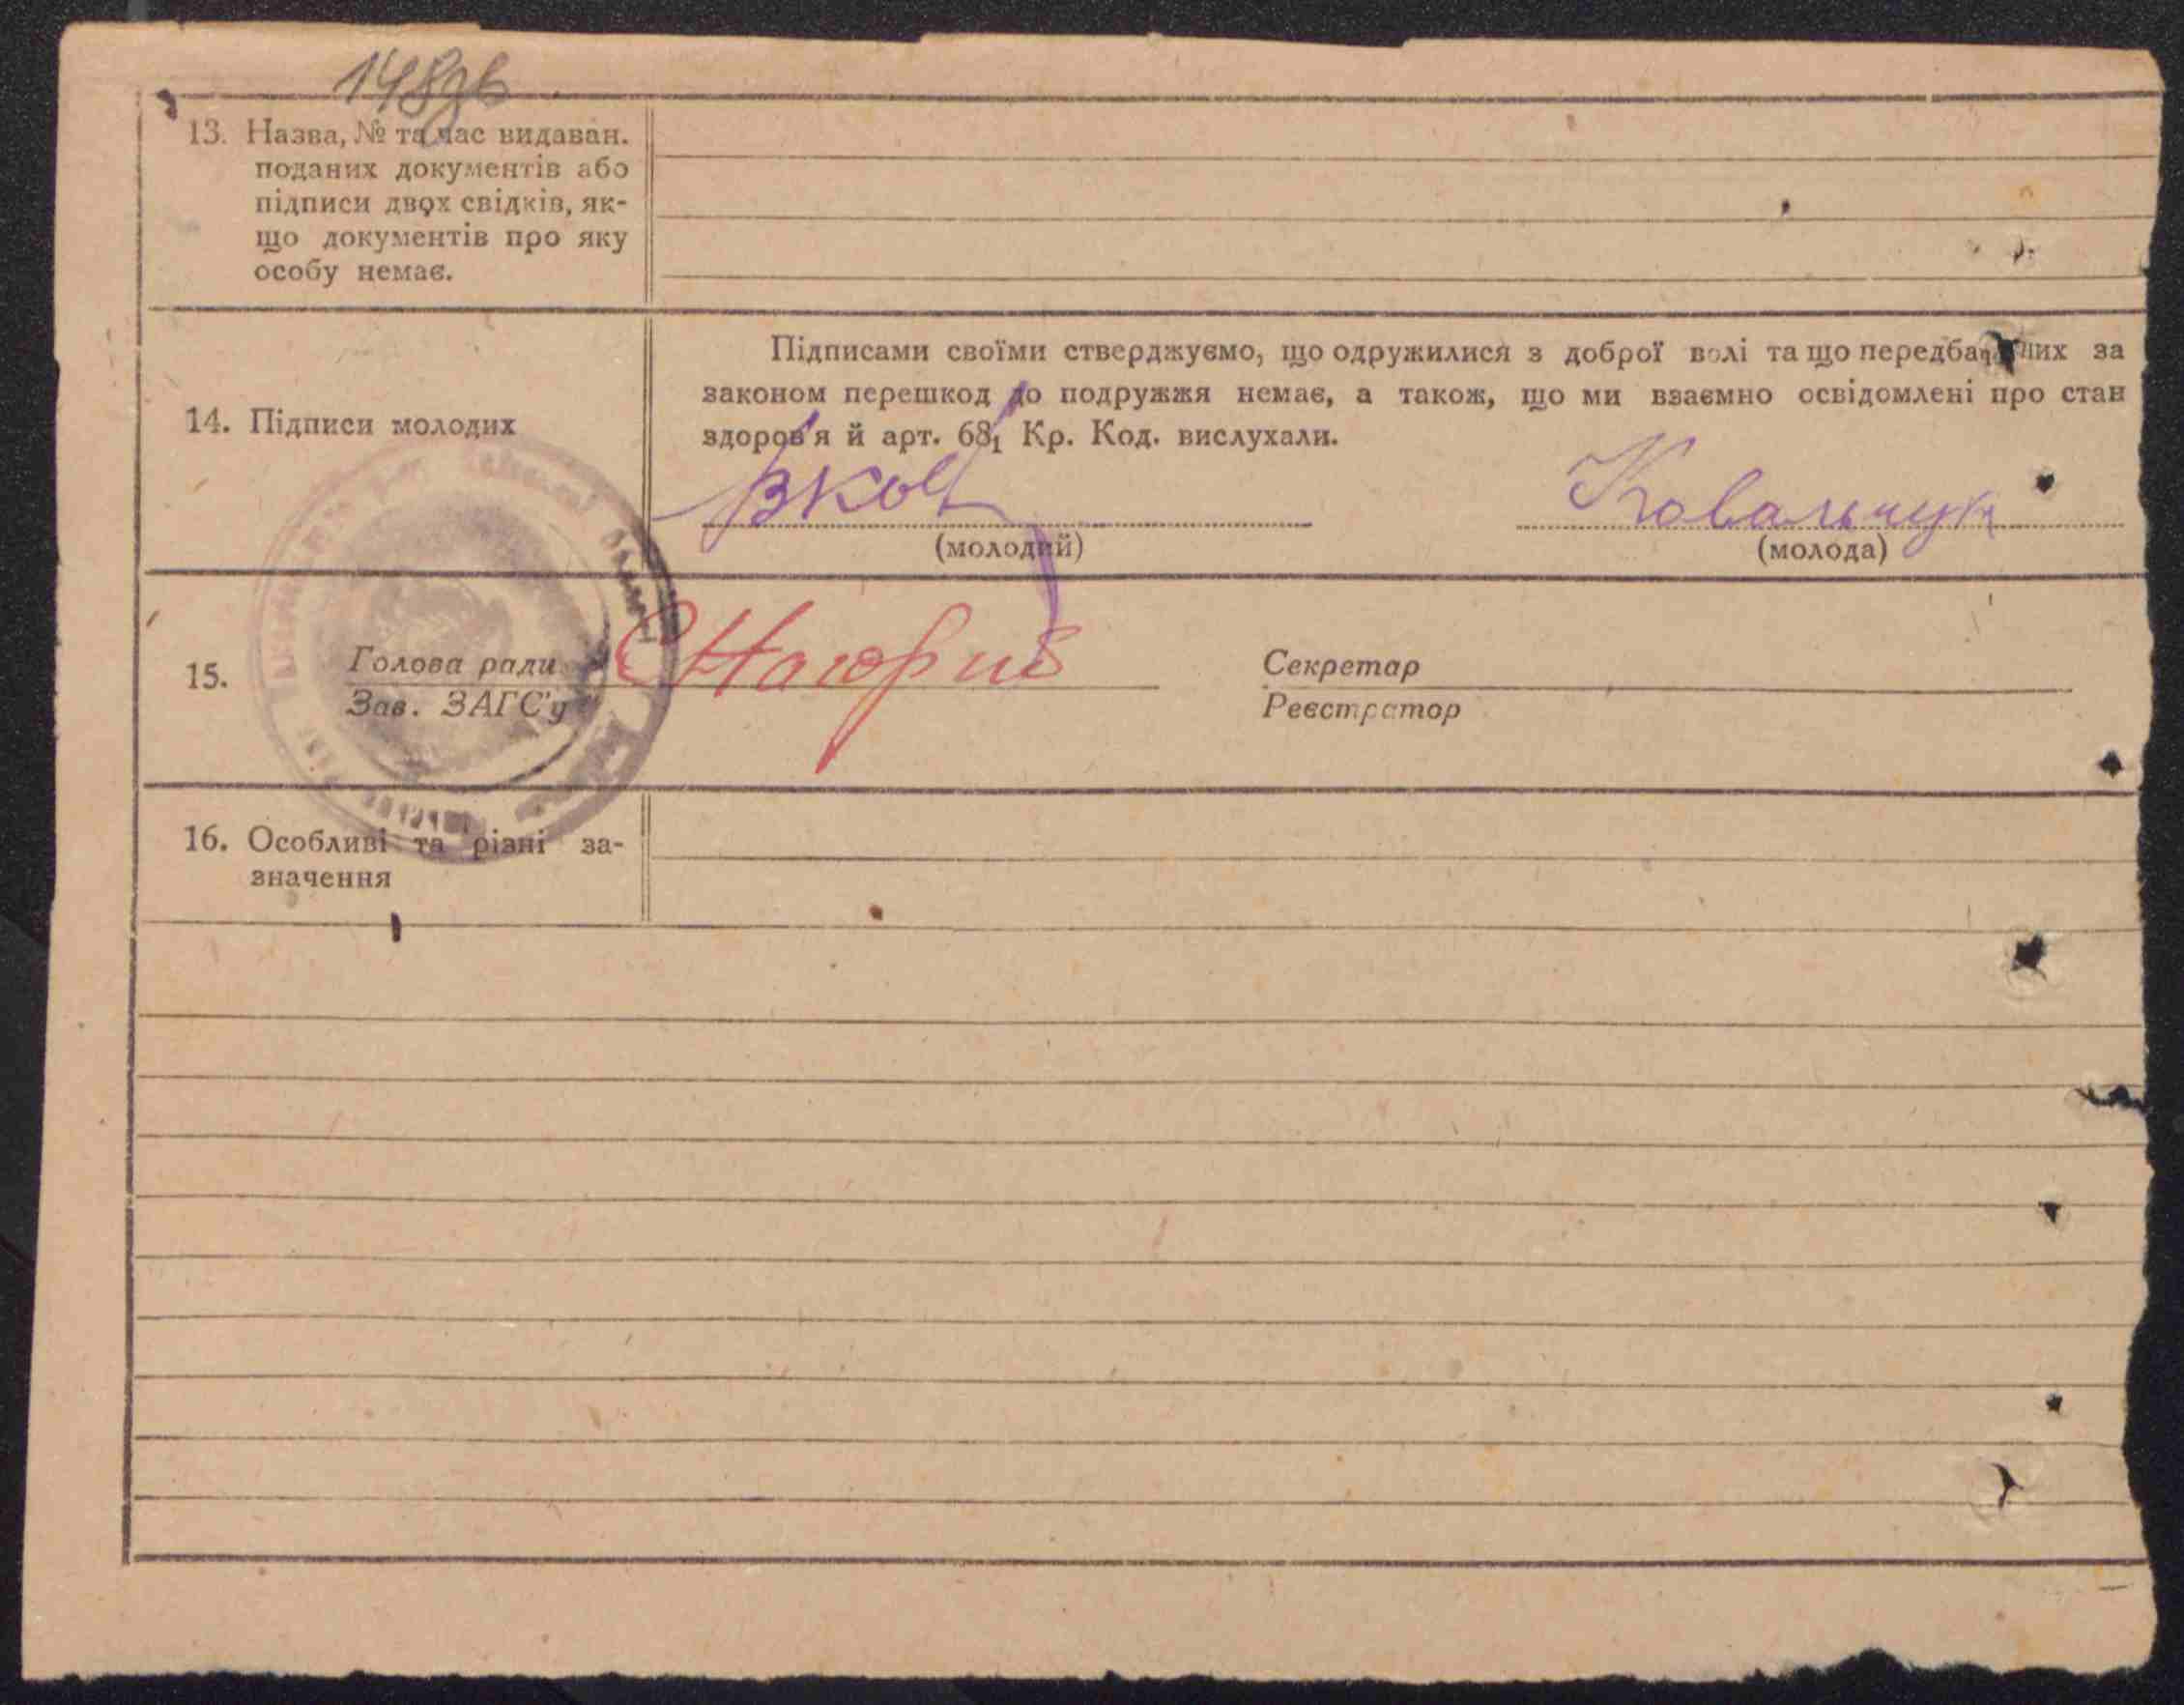 148зв
13. Назва, № та час видаван.
поданих документів або
підписи двох свідків, як-
що документів про яку
особу немає.
Підписами своїми стверджуємо, що одружилися з доброї волі та що передбачених за
законом перешкод до подружжя немає, а також, що ми взаємно освідомлені про стан
14. Підписи молодих
здоров'я й арт. 68₁ Кр. Код. вислухали.
Ковальчук
(молодий) (молода)
15. Голова ради Секретар
Зав. ЗАГС'у Реєстратор
16. Особливі та різні за-
значення